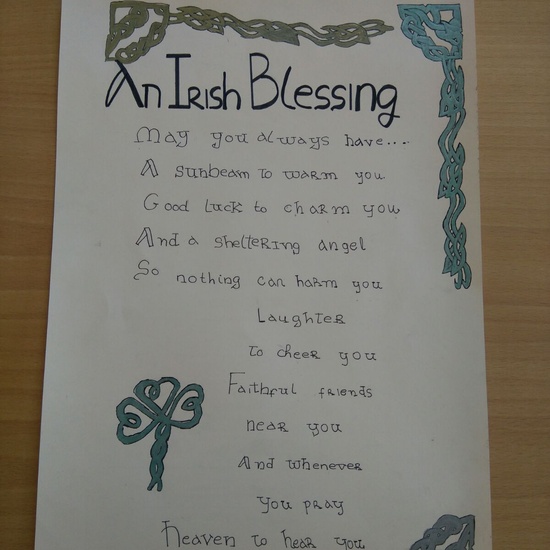 An Irish Blessing
May you always have...
A sunbeam to warm you
Good luck to charm you
And a sheltering angel
So nothing can harm you
Laughter
to cheer you
Faithful friends
near you
And whenever
you pray
heaven to hear you